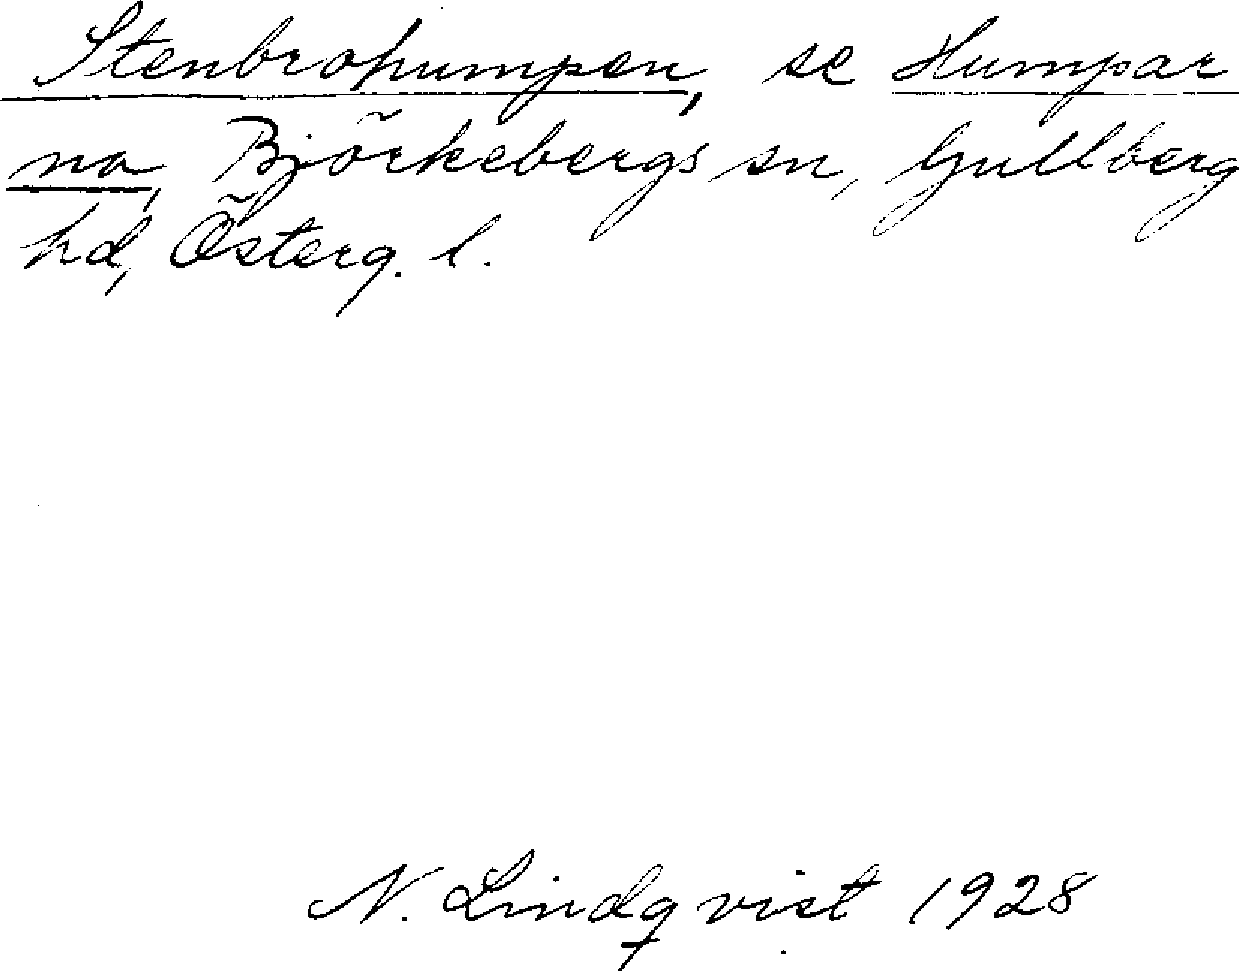 Stenbrohumpen, se Humpar
na, Björkebergs sn, Gullberg
hd, Österg. l.
N. Lindqvist 1928